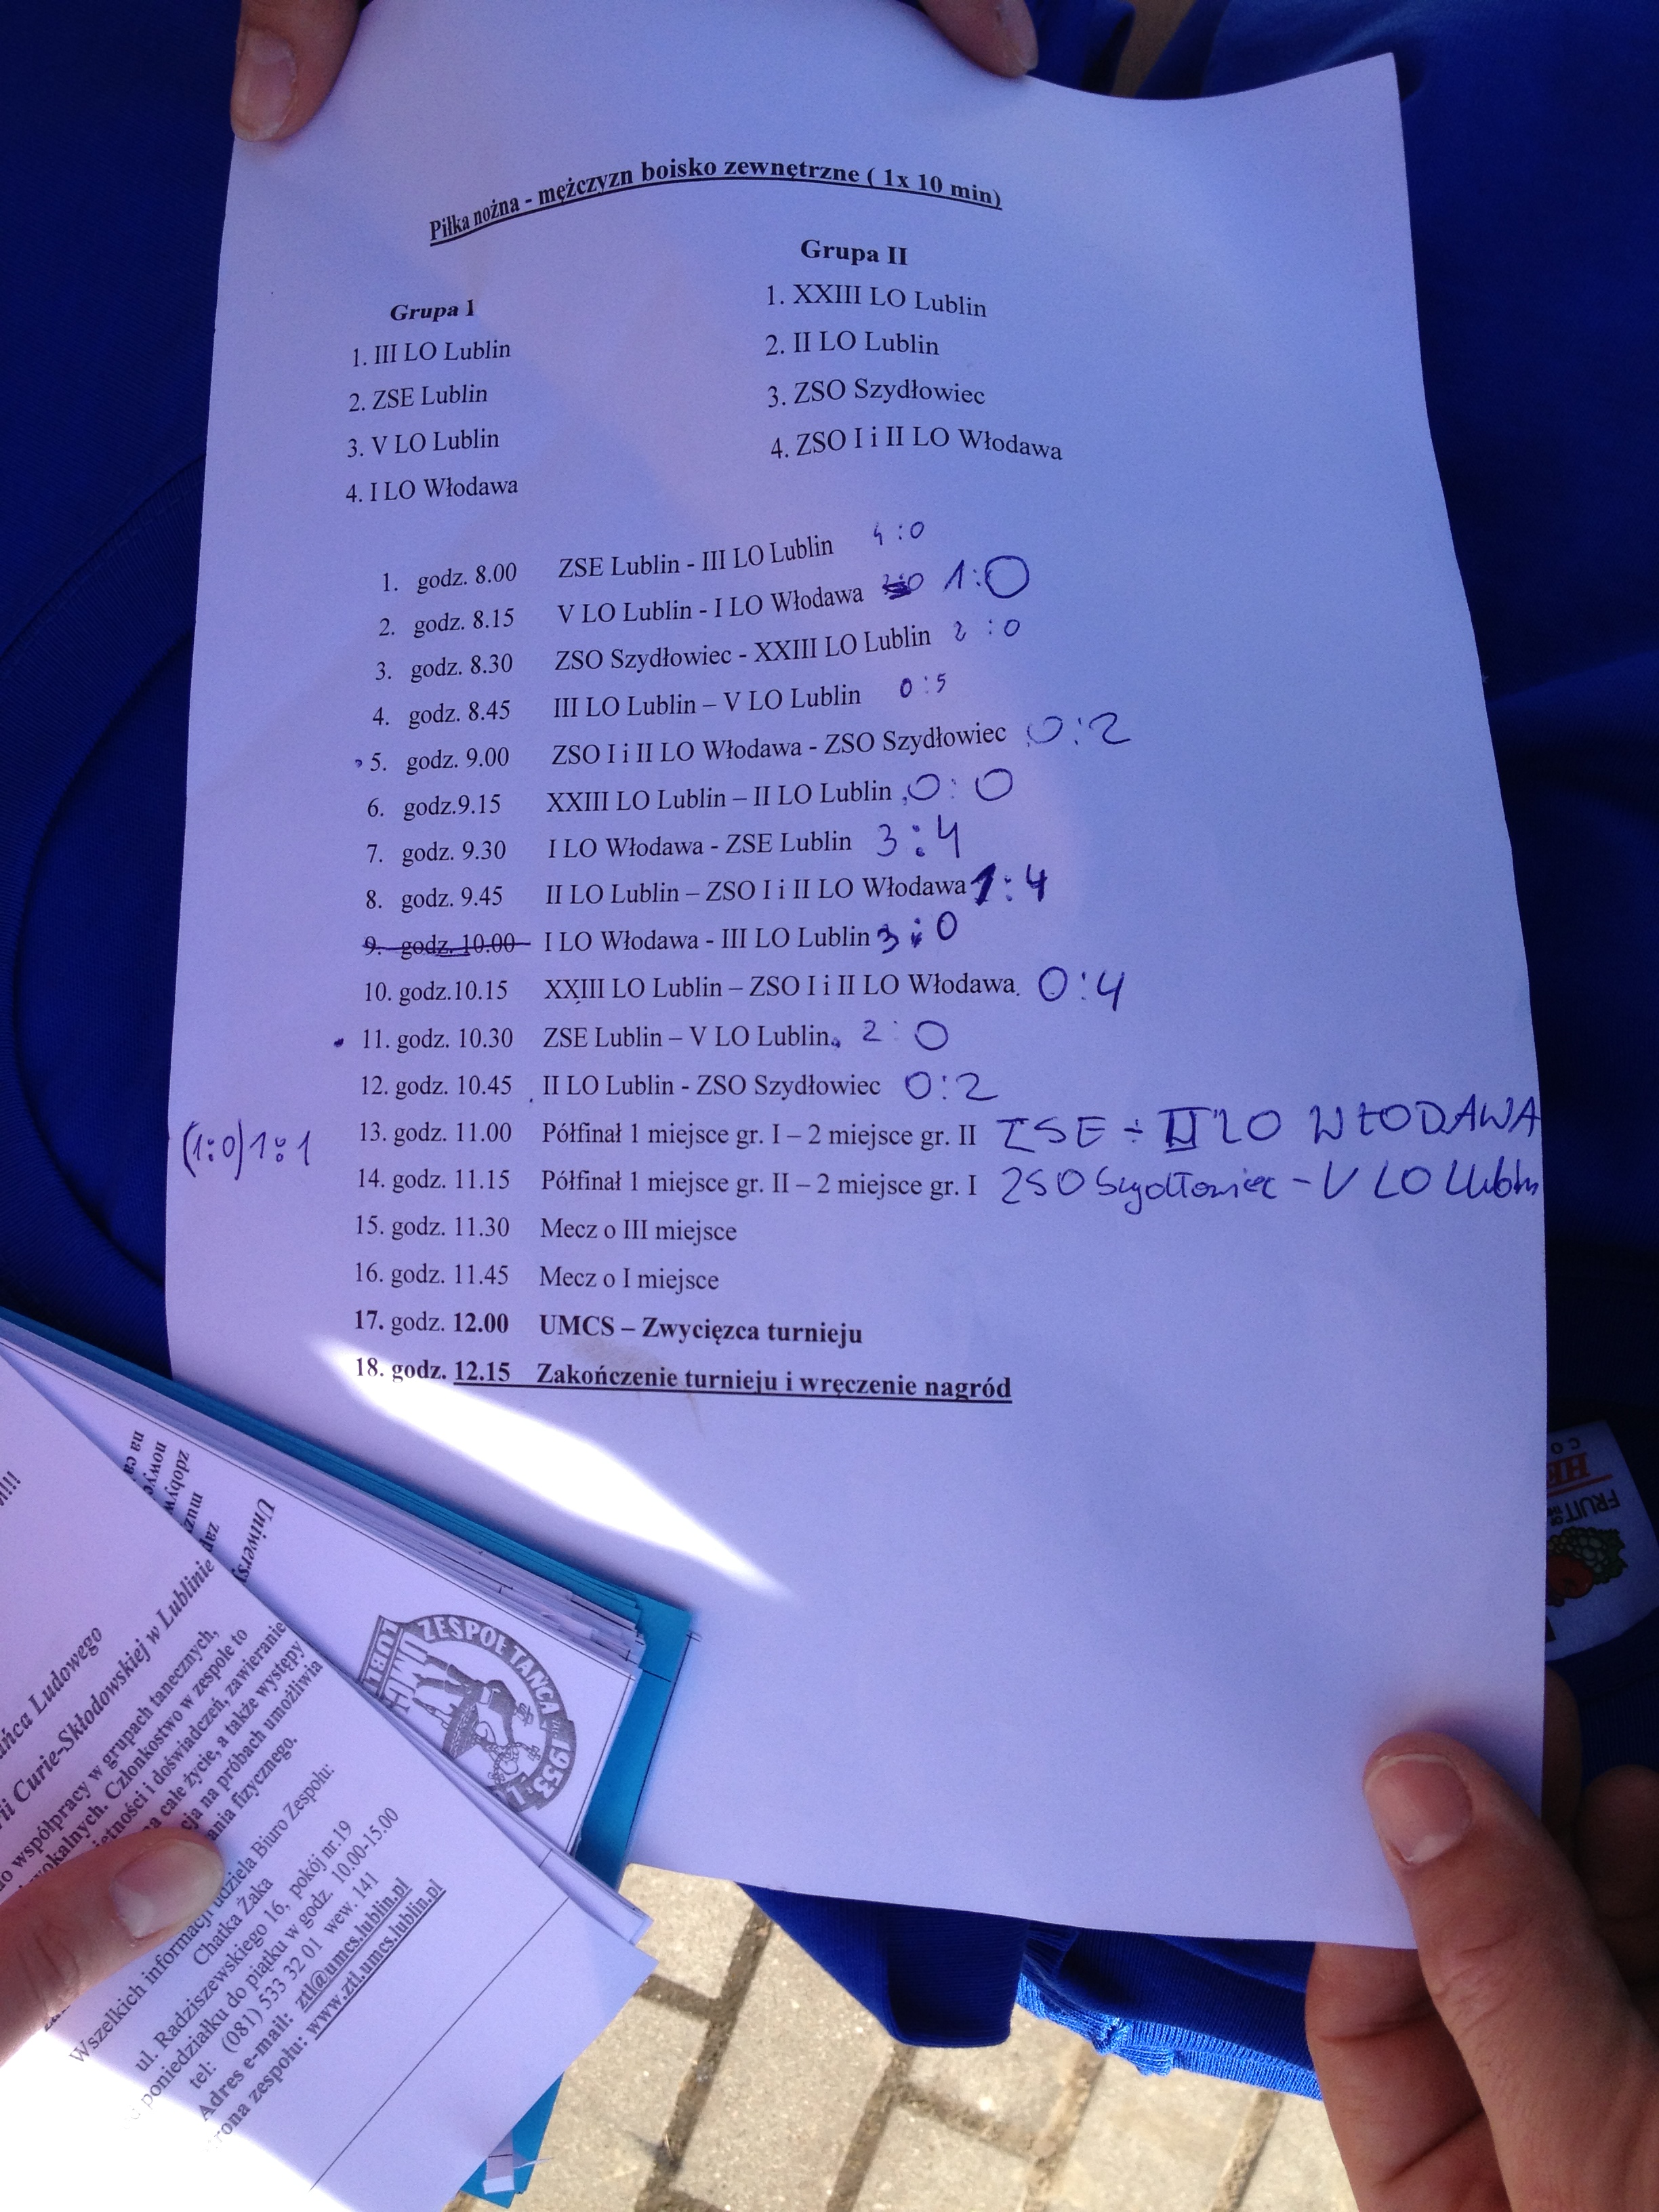 Piłka nożna - mężczyzn boisko zewnętrzne ( 1x 10 min)
Grupa 1
1. III LO Lublin
2. ZSE Lublin
3. V LO Lublin
4. I LO Włodawa
Grupa II
1. XXIII LO Lublin
2. II LO Lublin
3. ZSO Szydłowiec
4. ZSO I i II LO Włodawa
1. godz. 8.00 ZSE Lublin - III LO Lublin 4:0
2. godz. 8.15 V LO Lublin - I LO Włodawa 1:0
3. godz. 8.30 ZSO Szydłowiec - XXIII LO Lublin 2:0
4. godz. 8.45 III LO Lublin – V LO Lublin 0:5
5. godz. 9.00 ZSO I i II LO Włodawa - ZSO Szydłowiec 0:2
6. godz.9.15 XXIII LO Lublin – II LO Lublin 0:0
7. godz. 9.30 I LO Włodawa - ZSE Lublin 3:4
8. godz. 9.45 II LO Lublin – ZSO I i II LO Włodawa 1:4
9. godz. 10.00 I LO Włodawa - III LO Lublin 3:0
10. godz.10.15 XXIII LO Lublin – ZSO I i II LO Włodawa 0:4
11. godz. 10.30 ZSE Lublin – V LO Lublin 2:0
12. godz. 10.45 II LO Lublin - ZSO Szydłowiec 0:2
(1:0) 1:1 13. godz. 11.00 Półfinał 1 miejsce gr. I – 2 miejsce gr. II ZSE - II LO WŁODAWA
14. godz. 11.15 Półfinał 1 miejsce gr. II – 2 miejsce gr. I ZSO Szydłowiec - V LO Lublin
15. godz. 11.30 Mecz o III miejsce
16. godz. 11.45 Mecz o I miejsce
17. godz. 12.00 UMCS – Zwycięzca turnieju
18. godz. 12.15 Zakończenie turnieju i wręczenie nagród
FRUIT
na
nowyc
zdobyw
muz
Uniwersy
ZESPÓŁ TAŃCA
UMCS
1953
ańca Ludowego
rii Curie-Skłodowskiej w Lublinie
o współpracy w grupach tanecznych,
wokalnych. Członkostwo w zespole to
iętności i doświadczeń, zawieranie
a całe życie, a także występy
cja na próbach umożliwia
ania fizycznego.
Wszelkich informacji udziela Biuro Zespołu:
Chatka Żaka
ul. Radziszewskiego 16, pokój nr.19
poniedziałku do piątku w godz. 10.00-15.00
tel: (081) 533 32 01 wew. 141
Adres e-mail: ztl@umcs.lublin.pl
rona zespołu: www.ztl.umcs.lublin.pl